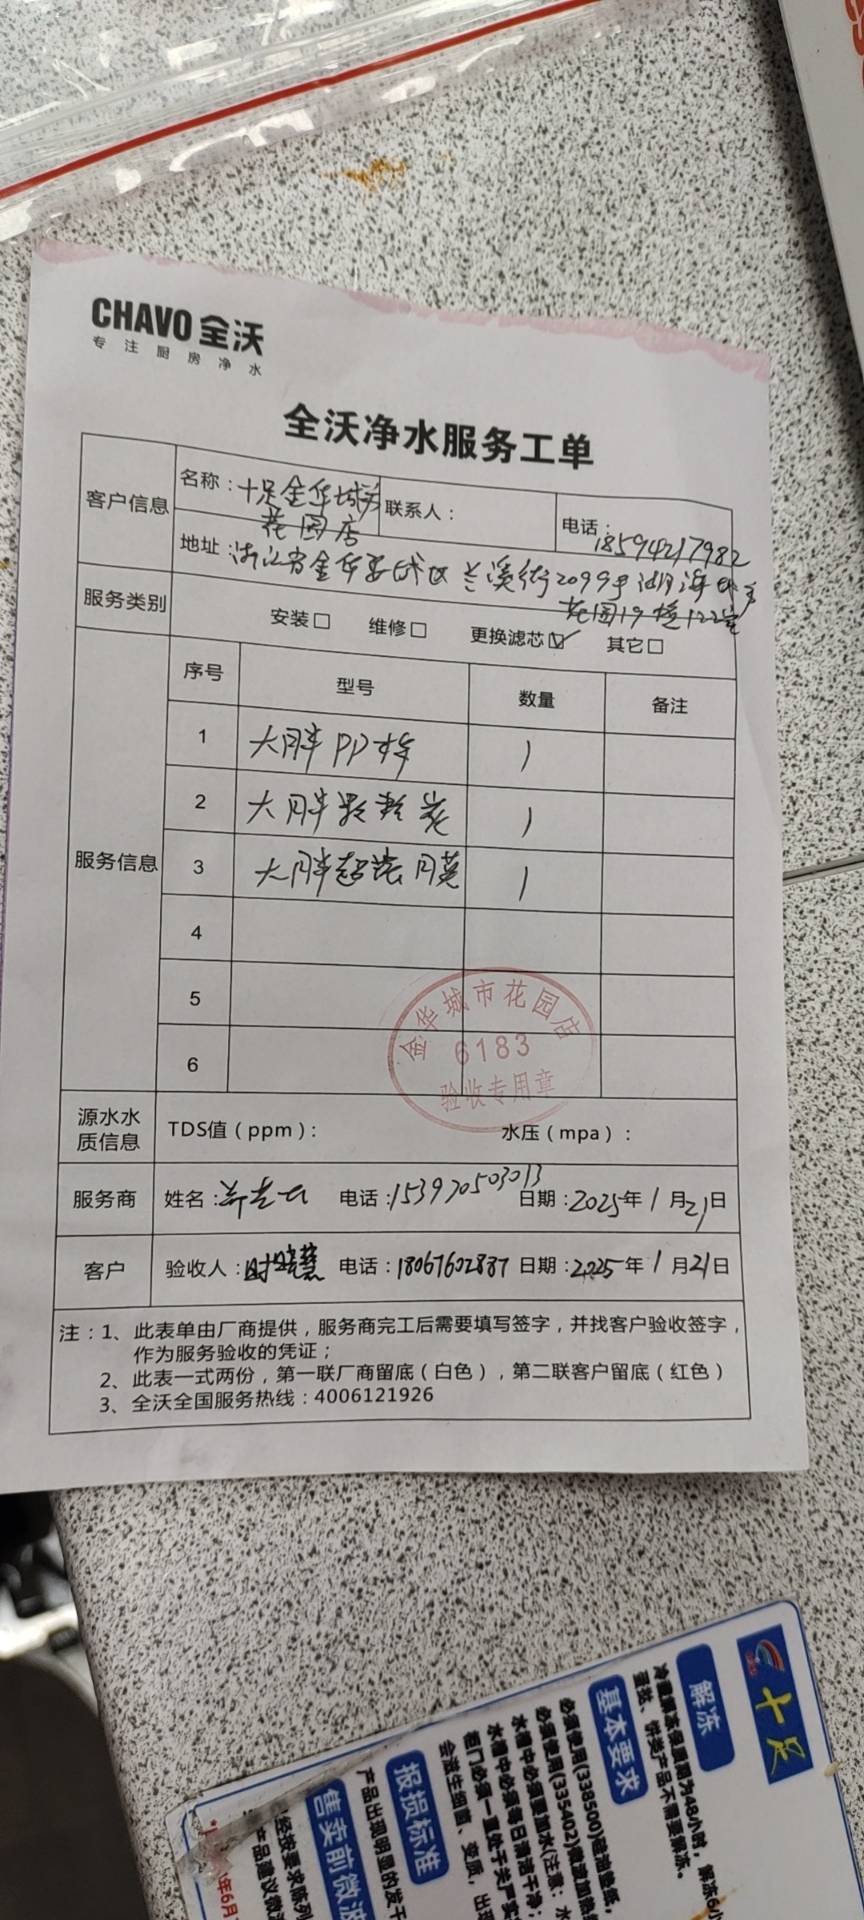 CHAVO 全沃
专注厨房净水
全沃净水服务工单
客户信息
名称：十足金华城市花园店
联系人：
电话：18594217982
地址：浙江省金华婺城区兰溪街2099号湖海城市花园19幢122室
服务类别
安装□ 维修□ 更换滤芯☑ 其它□
服务信息
序号 型号 数量 备注
1 大胖PP棉 1
2 大胖颗粒炭 1
3 大胖超滤膜 1
4
5
6
金华城市花园店
6183
验收专用章
源水水质信息
TDS值（ppm）： 水压（mpa）：
服务商 姓名： 电话：153970503013 日期：2025年1月21日
客户 验收人：时晓慧 电话：18067602887 日期：2025年1月21日
注：1、此表单由厂商提供，服务商完工后需要填写签字，并找客户验收签字，
作为服务验收的凭证；
2、此表一式两份，第一联厂商留底（白色），第二联客户留底（红色）
3、全沃全国服务热线：4006121926
十足
解冻
冷藏解冻保质期为48小时，解冻6小
蛋挞、饼类产品不需要解冻。
基本要求
必须使用(338500)吸油垫纸，
必须使用(335402)微波加热
水槽中必须要加水(注意：水
水槽中必须每日清洁干净；
柜门必须一直处于关严实
会滋生细菌、变质，出现
报损标准
产品出现明显的发干
售卖前微波